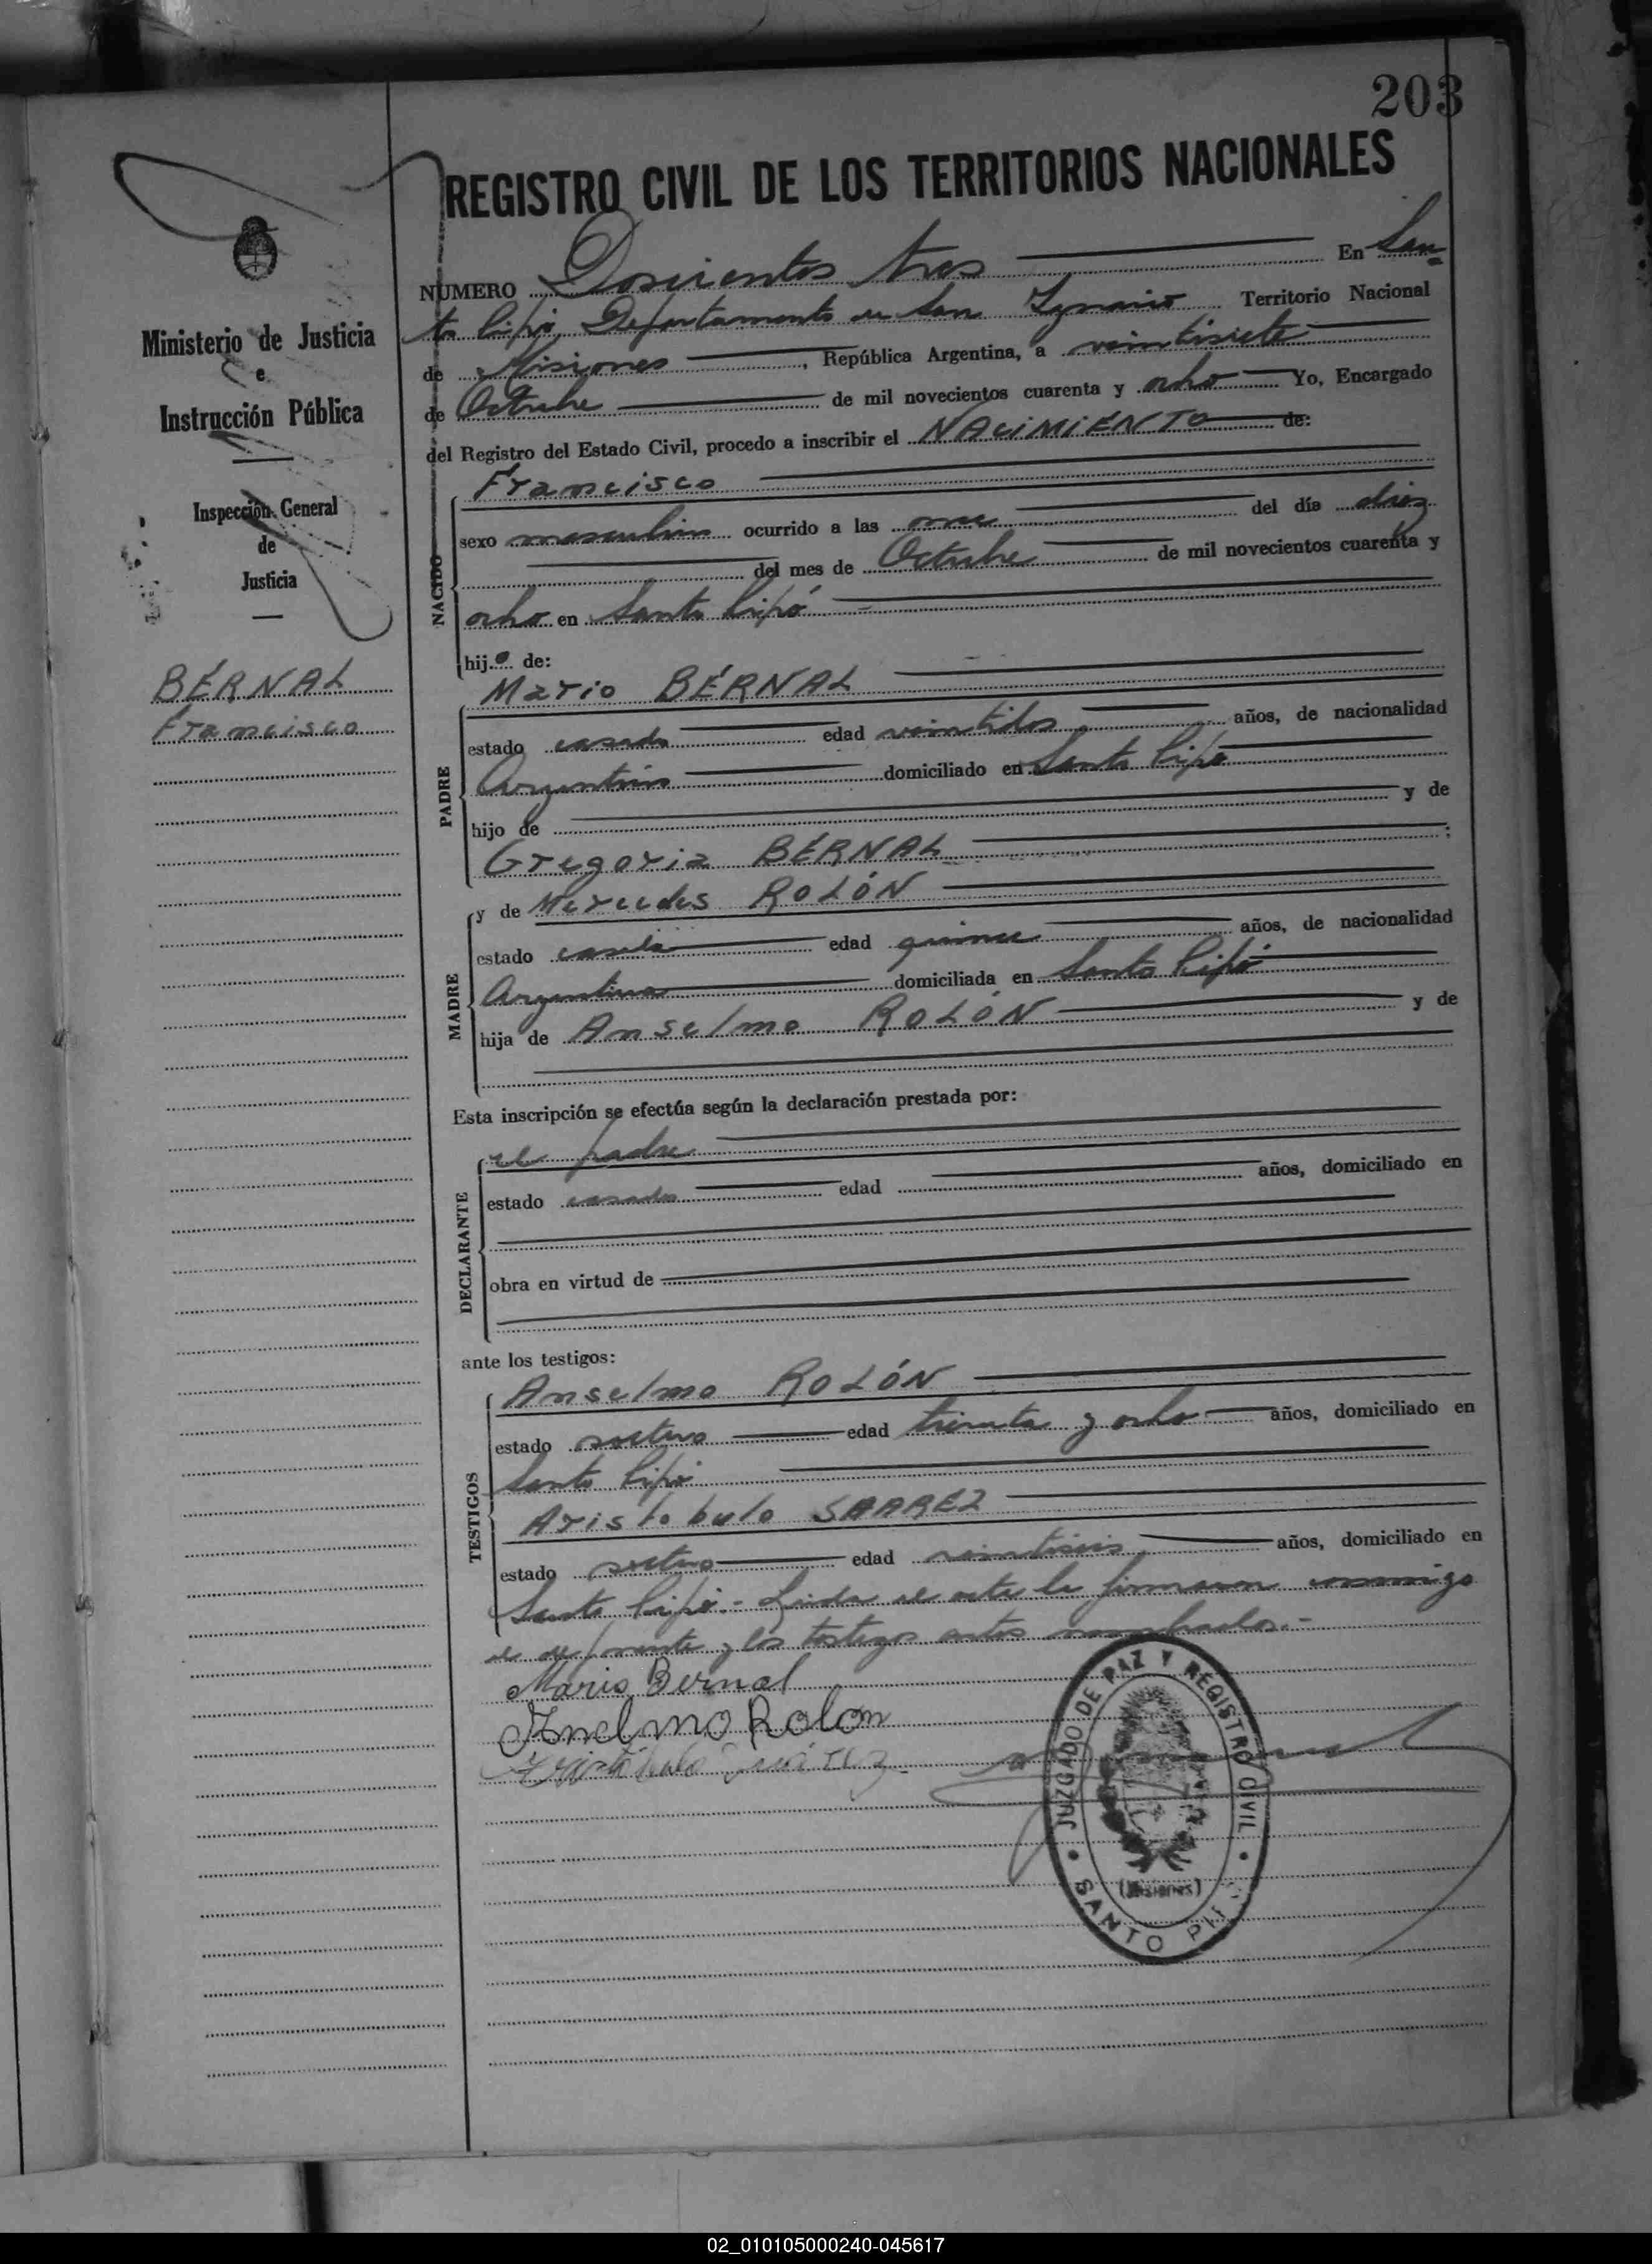 203
REGISTRO CIVIL DE LOS TERRITORIOS NACIONALES
NUMERO Doscientos tres En San-
to Pipó, Departamento de San Ygnacio Territorio Nacional
de Misiones, República Argentina, a veintisiete
de Octubre de mil novecientos cuarenta y ocho Yo, Encargado
del Registro del Estado Civil, procedo a inscribir el NACIMIENTO de:
Francisco
NACIDO
sexo masculino ocurrido a las once del día diez
del mes de Octubre de mil novecientos cuarenta y
ocho en Santo Pipó
hijo de:
Mario BÉRNAL
PADRE
estado casado edad veintidos años, de nacionalidad
Argentino domiciliado en Santo Pipó
hijo de y de
Gregoria BÉRNAL ;
y de Mercedes ROLÓN
MADRE
estado casada edad quince años, de nacionalidad
Argentina domiciliada en Santo Pipó
hija de Anselmo ROLÓN y de
Esta inscripción se efectúa según la declaración prestada por:
el padre
DECLARANTE
estado casado edad años, domiciliado en
obra en virtud de
ante los testigos:
Anselmo ROLÓN
TESTIGOS
estado soltero edad treinta y ocho años, domiciliado en
Santo Pipó
Aristobulo SUAREZ
estado soltero edad veintiseis años, domiciliado en
Santo Pipó.- Leída el acta la firmaron conmigo
el exponente y los testigos antes nombrados.-
Mario Bernal
Anselmo Rolón
Aristóbulo Suárez
JUZGADO DE PAZ Y REGISTRO CIVIL
(Misiones)
SANTO PIPÓ
Ministerio de Justicia
e
Instrucción Pública
Inspección General
de
Justicia
BÉRNAL
Francisco
02_010105000240-045617